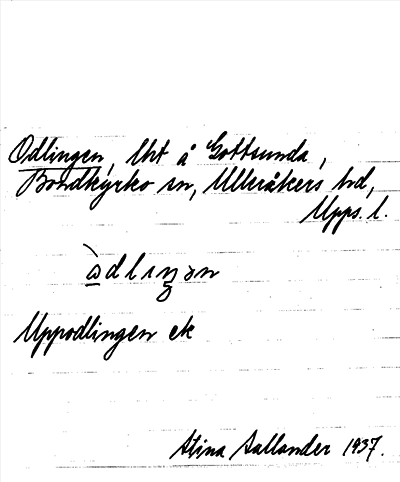 Odlingen, lht å Gottsunda,
Bondkyrko sn, Ulleråkers hd,
Upps. l.
òdlıŋən
Uppodlingen ek
Stina Sallander 1937.